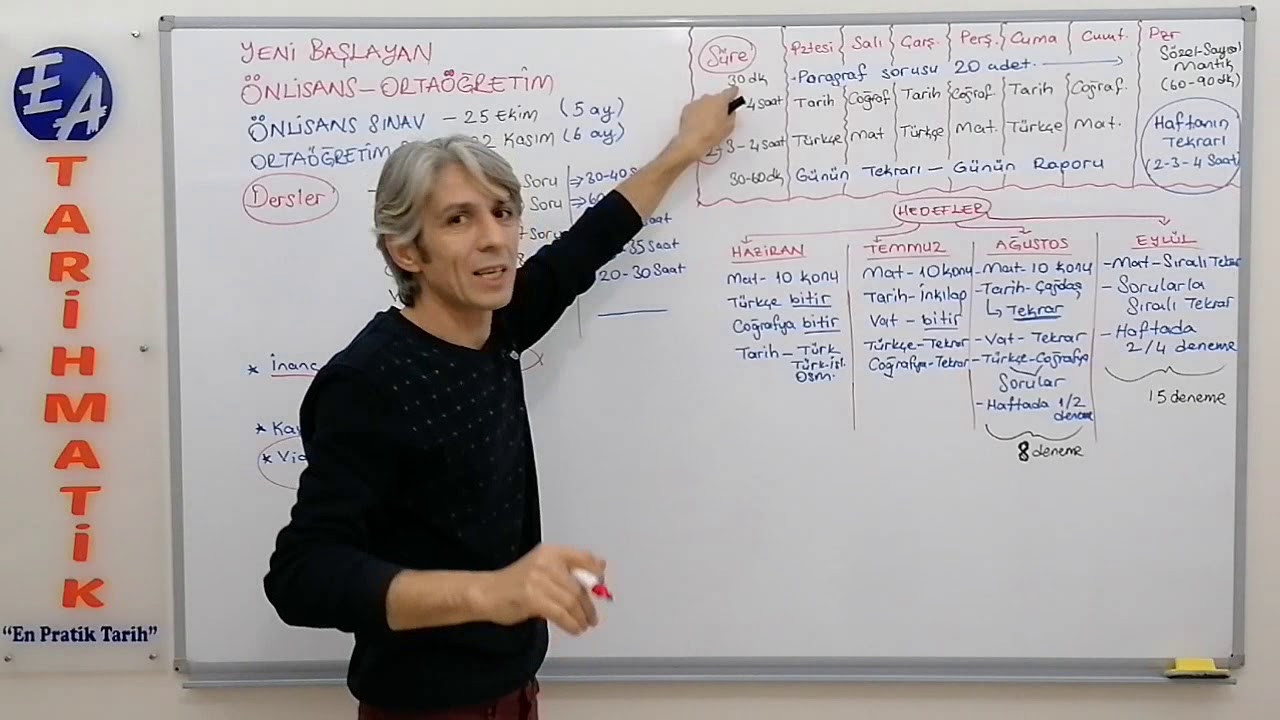 EA
TARİHMATİK
“En Pratik Tarih”
YENİ BAŞLAYAN
ÖNLİSANS – ORTAÖĞRETİM
ÖNLİSANS SINAV – 25 EKİM (5 ay)
ORTAÖĞRETİM 22 KASIM (6 ay)
Dersler
Soru ⇒ 30-40
Soru ⇒ 60
Soru Saat
35 Saat
20-30 Saat
* İnanç
* Kay
* Vid
Süre Pztesi Salı Çarş. Perş. Cuma Cumt. Pzr
30 dk - Paragraf sorusu 20 adet. →
4 saat Tarih Coğraf Tarih Coğraf. Tarih Coğraf.
2-3-4 saat Türkçe Mat Türkçe Mat. Türkçe Mat.
30-60 dk Günün Tekrarı – Günün Raporu
Sözel-Sayısal
Mantık
(60-90 dk)
Haftanın
Tekrarı
(2-3-4 Saat)
HEDEFLER
HAZİRAN
Mat- 10 konu
Türkçe bitir
Coğrafya bitir
Tarih – Türk
Türk-İsl.
Osm.
TEMMUZ
Mat- 10 konu
Tarih-İnkılap
Vat - bitir
Türkçe-Tekrar
Coğrafya-Tekrar
AĞUSTOS
- Mat- 10 konu
- Tarih-Çağdaş
↳ Tekrar
- Vat- Tekrar
- Türkçe-Coğrafya
Sorular
- Haftada 1/2
deneme
8 deneme
EYLÜL
- Mat-Sıralı Tekrar
- Sorularla
Sıralı Tekrar
- Haftada
2/4 deneme
15 deneme